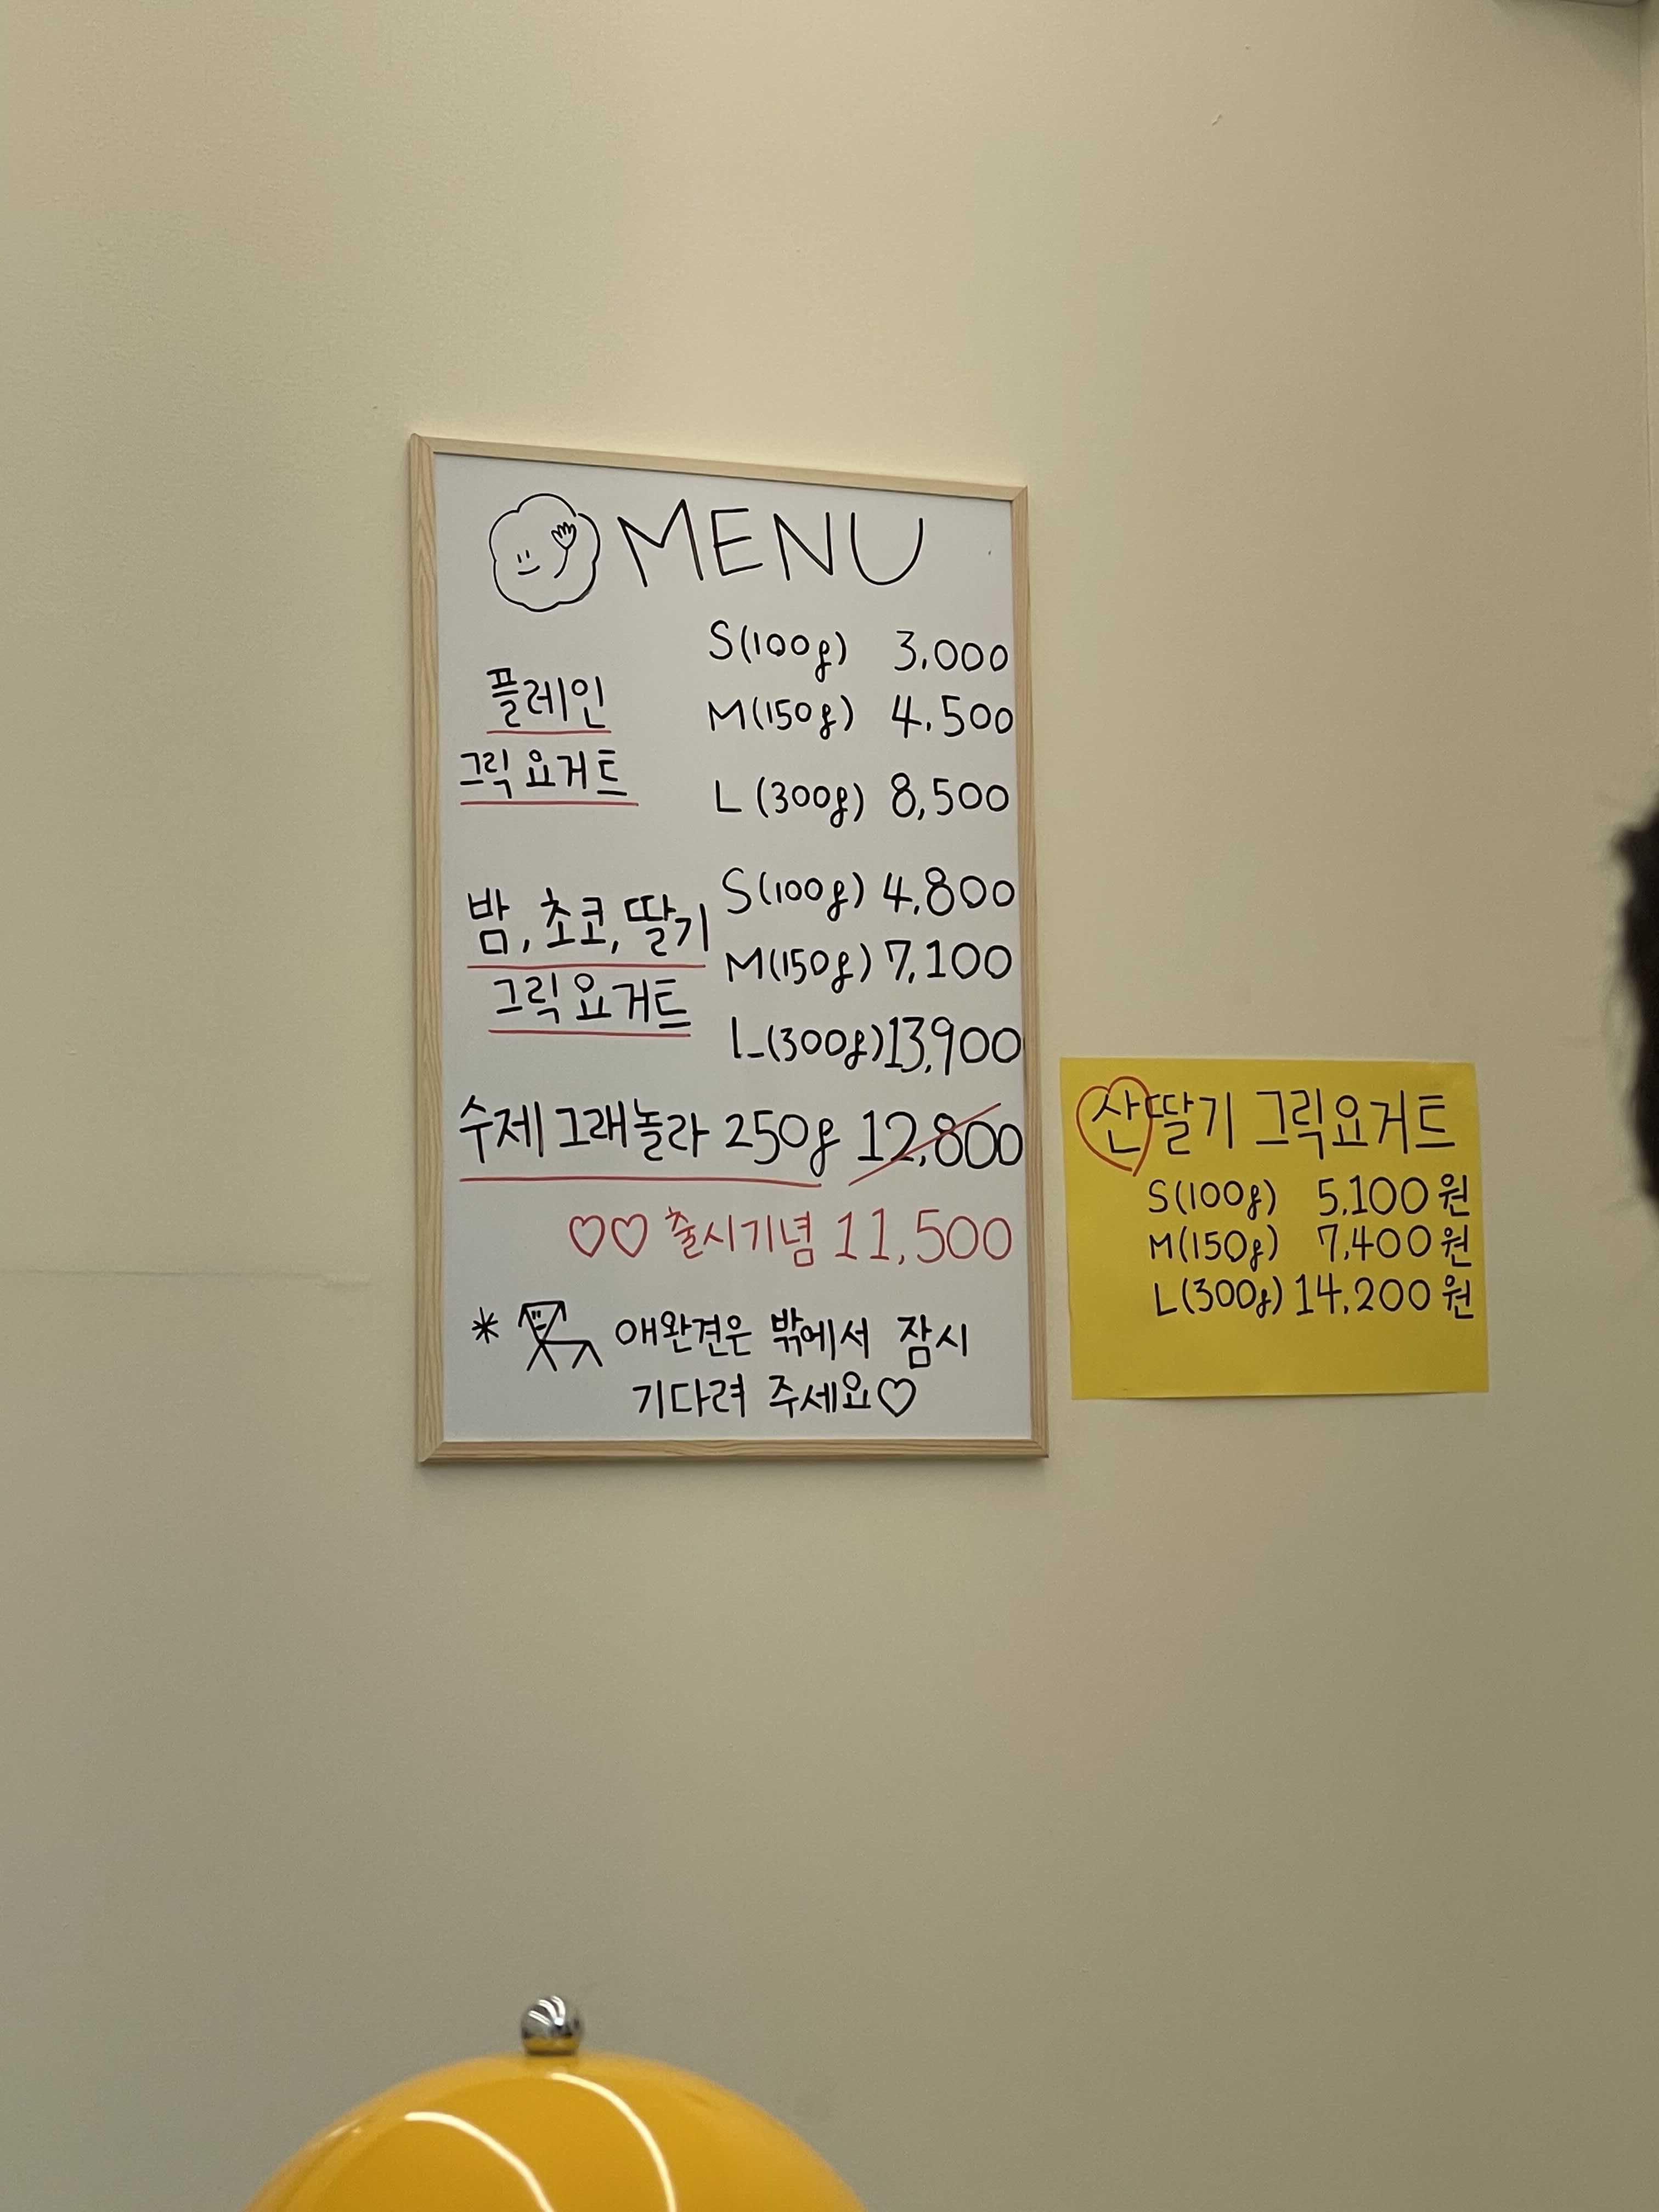 MENU
플레인
그릭 요거트
S(100g) 3,000
M(150g) 4,500
L (300g) 8,500
밤, 초코, 딸기
그릭 요거트
S(100g) 4,800
M(150g) 7,100
L(300g) 13,900
수제 그래놀라 250g 12,800
♡♡ 출시기념 11,500
* 애완견은 밖에서 잠시
기다려 주세요♡
산딸기 그릭요거트
S(100g) 5,100원
M(150g) 7,400원
L(300g) 14,200원